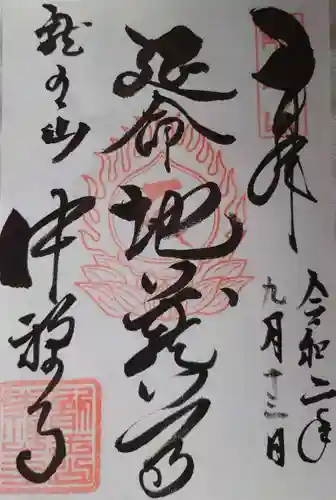 奉拝
令和二年
九月十三日
延命地蔵尊
龍王山
中禅寺